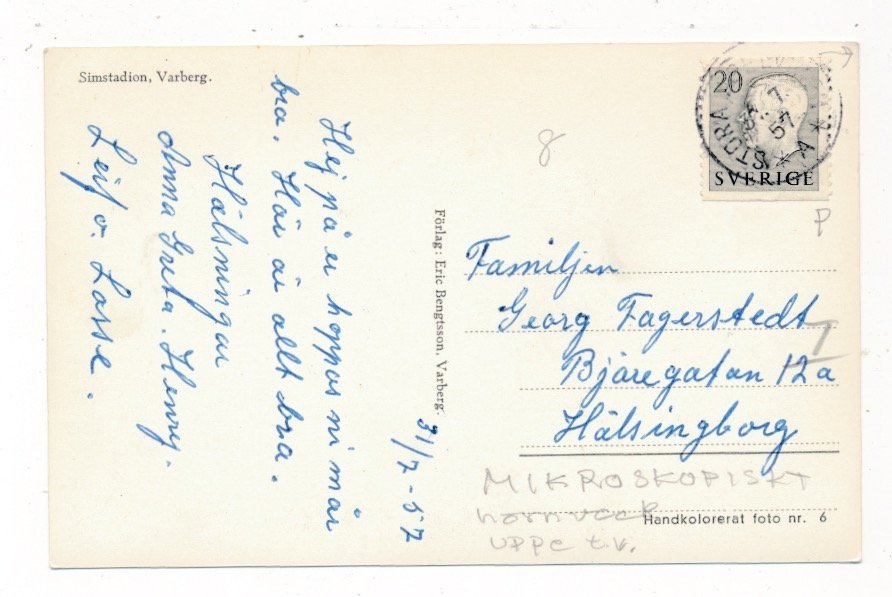 Simstadion, Varberg.
Hej på er hoppas ni mår
bra. Här är allt bra.
Hälsningar
Anna Greta. Henry.
Leif o. Lasse.
31/7-57
Förlag: Eric Bengtsson, Varberg.
20
SVERIGE
STORA
A
7.
57
8
P
Familjen
Georg Fagerstedt
Bjäregatan 12a
Hälsingborg
MIKROSKOPISKT
hörnveck
uppe t.v.
Handkolorerat foto nr. 6